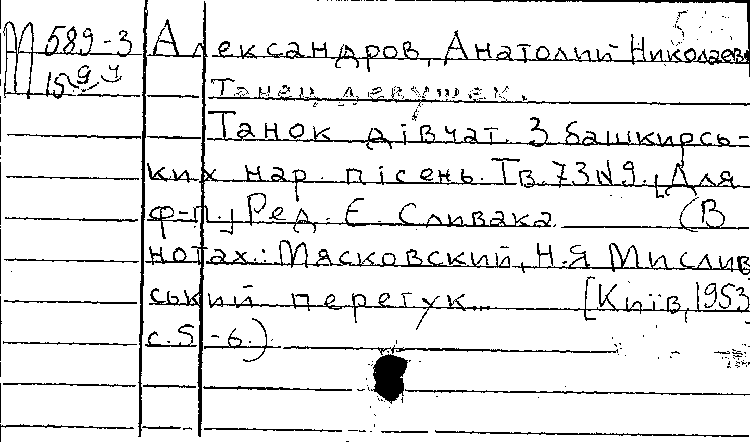 589-3 Александров, Анатолий Николаев
Танец девушек.
Танок дівчат. З башкирсь=
ких нар. пісень. Тв. 73 №9. [Для
ф-п.] Ред. Е. Сливака (В
нотах.: Мясковский, Н.Я Мислив
ський перегук... [Київ, 1953
с. 5-6.)